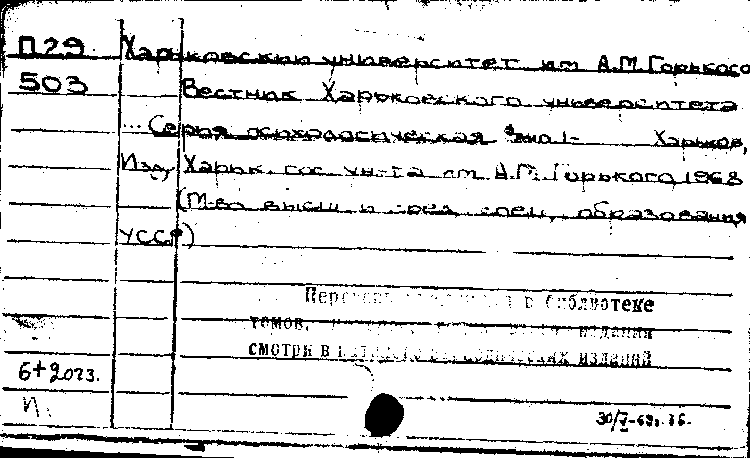 П29 Харьковский университет им А.М.Горького
503 Вестник Харьковского университета
... Серия психологическая Вып.1- Харьков,
Изд. Харьк. гос ун-та им А.М. Горького, 1968
(М-во высш и сред спец, образования
УССР)
в библиотеке
томов, издания
смотри в периодических изданий
6+20гз.
И.
30/V-69г.